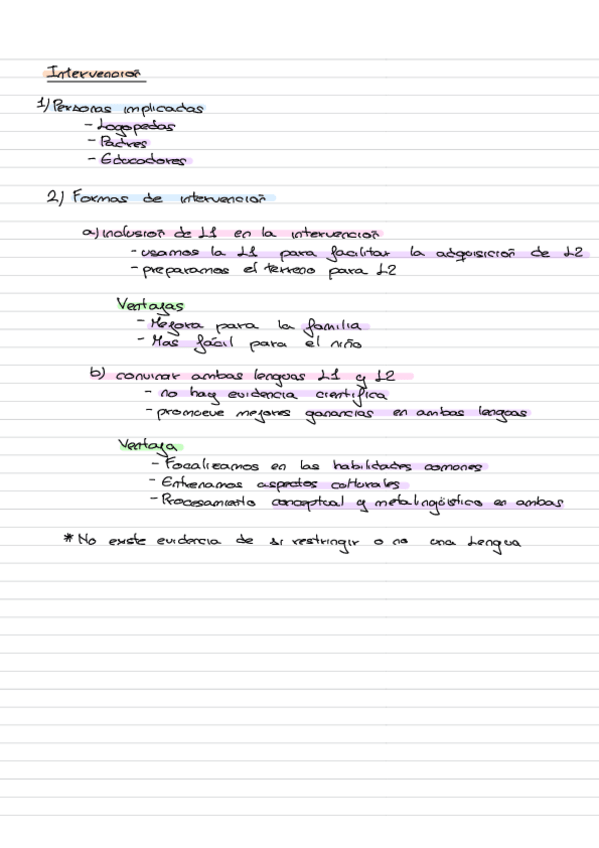 Intervención
1) Personas implicadas
- Logopedas
- Padres
- Educadores
2) Formas de intervención
a) inclusión de L1 en la intervención
- usamos la L1 para facilitar la adquisición de L2
- preparamos el terreno para L2
Ventajas
- Mejora para la familia
- Mas fácil para el niño
b) convinar ambas lenguas L1 y L2
- no hay evidencia científica
- promueve mejores ganancias en ambas lenguas
Ventaja
- Focalizamos en las habilidades comones
- Entrenamos aspectos culturales
- Procesamiento conceptual y metalingüístico en ambas
* No existe evidencia de si restringir o no una Lengua